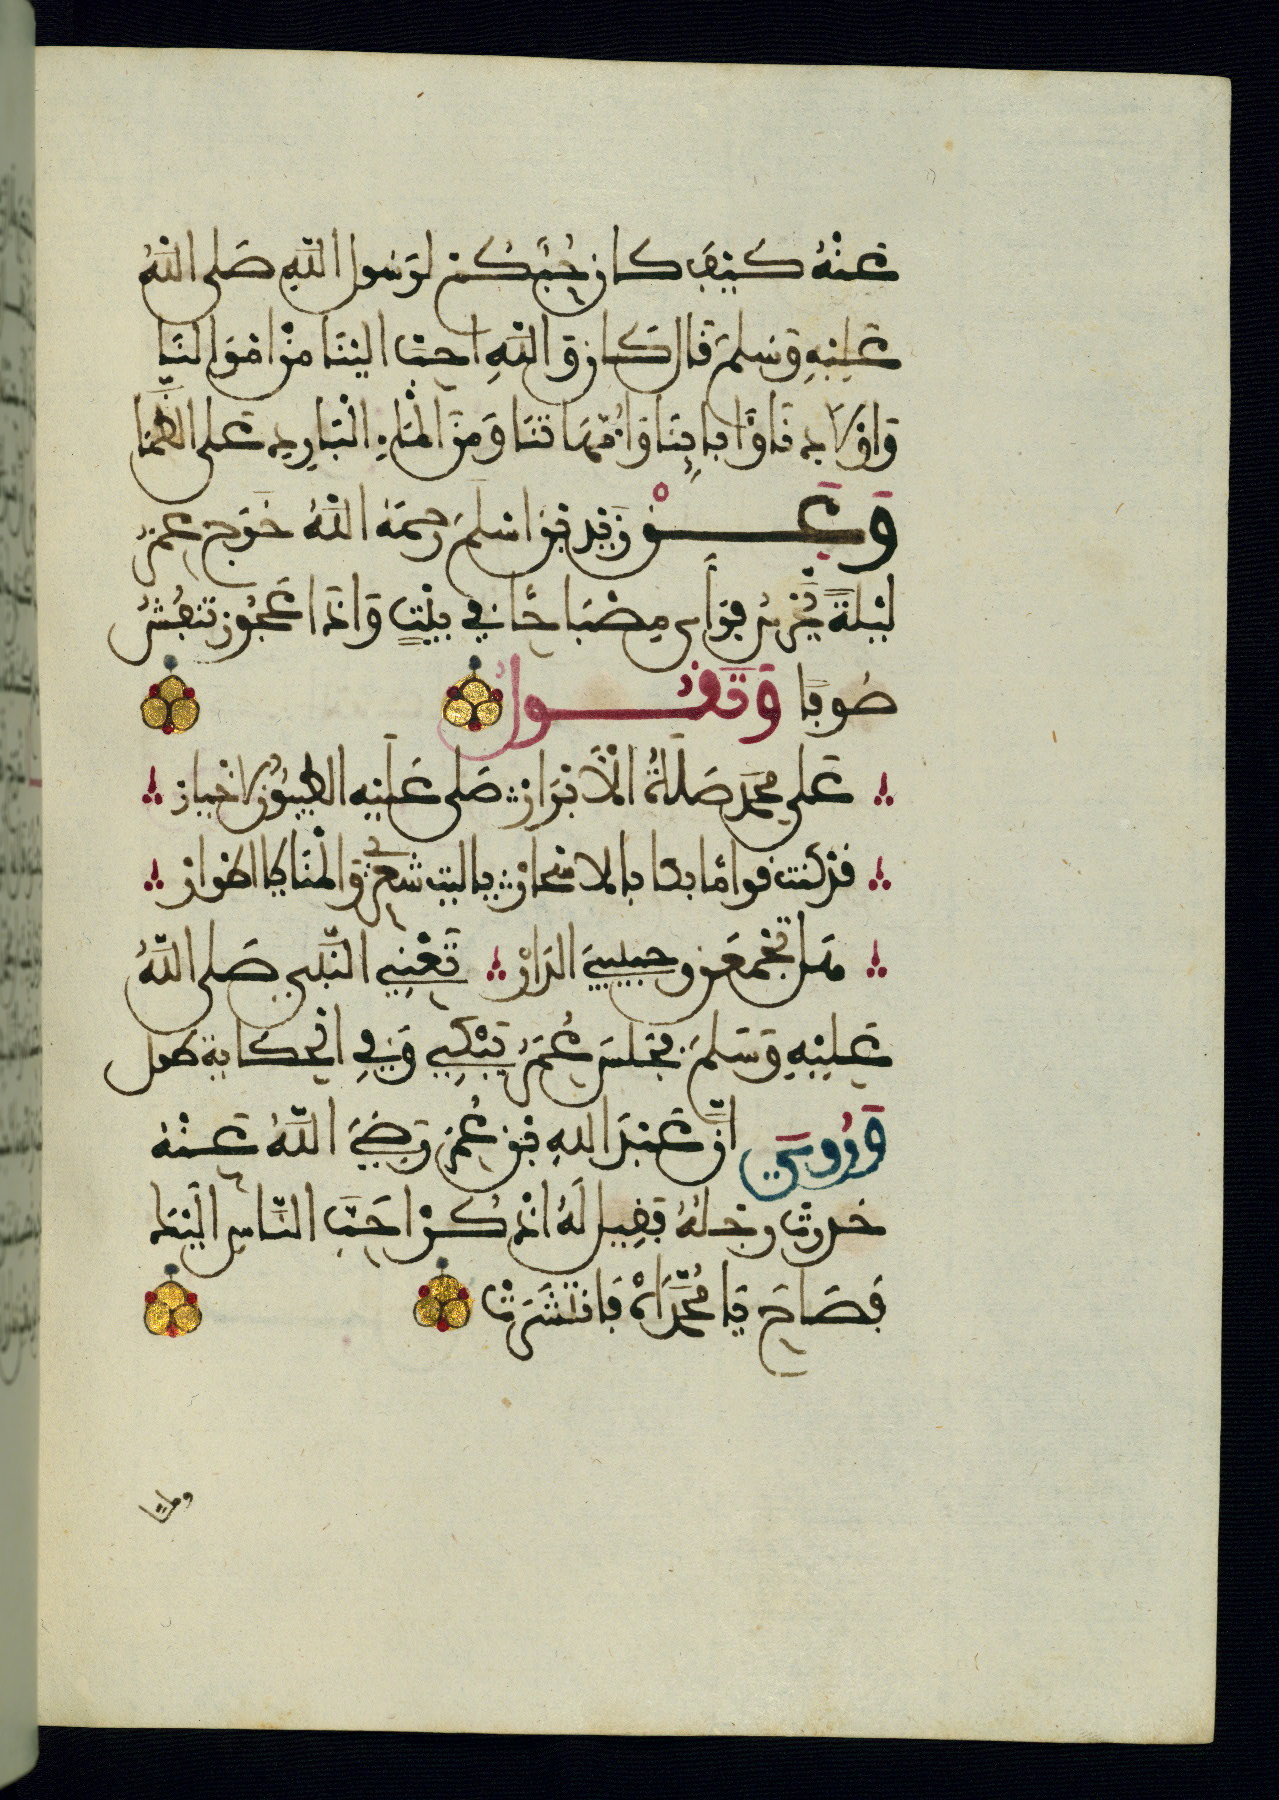 عَنْهُ كَيْفَ كان حُبُّكُمْ لرَسُول اللَّهِ صَلى اللَّهُ
عَلَيْهِ وَسَلمَ قَال كَان وَاللَّهِ احبَّ اليْنَا مِنْ امْوَالنَا
وَاوْلادِنَا وَءَابَائِنَا وَأُمَّهَاتنَا وَمِنَ الْمَاءِ الْبَارِدِ عَلى الظَّمَإ
وَعَــــنْ زَيْد بْن اسْلَمَ رَحِمَهُ اللَّهُ خَرَج عُمَرُ
لَيْلَةً يَحْرُسُ فَرَأى مِصْبَاحًا فِي بَيْتٍ وَاذَا عَجُوز تَنفُشُ
صُوفًا وَتَقُــــولُ
عَلى مُحَمَّد صَلاةُ الْأَبْرَارْ صَلى عَلَيْهِ الطَّيِّبُونَ الاخْيارْ
قَدْ كُنت قوامًا بكا بالاسْحارْ ياليت شعْرِي وَالْمَنَايَا اطْوَارْ
هَل تجْمَعَني وحبيبيَ الدَّارْ تَعْنِي النَّبي صَلى اللَّهُ
عَلَيْهِ وَسَلمَ فجَلسَ عُمَرُ يَبْكِي وَفِي الْحكاية طول
وَرُوِيَ انَّ عَبْدَ اللهِ بْنَ عُمَرَ رَضِيَ اللَّهُ عَنْهُ
خدرت رجْلهُ فَقِيل لَهُ اذْكُرْ احَبَّ النَّاسِ الَيْكَ
فَصَاحَ يَا مُحَمَّدَاهْ فَانْتَشَرَتْ
ولما